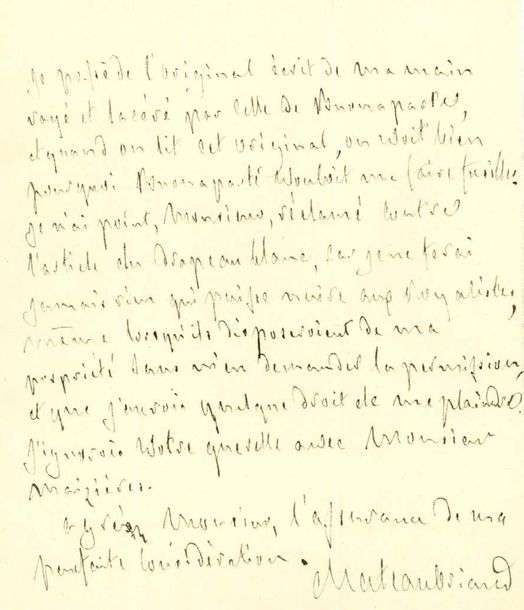 je possède l'original écrit de ma main
rayé et lacéré par celle de Buonaparte,
et quand on lit cet original, on voit bien
pourquoi Buonaparté vouloit me faire fusiller.
je n'ai point, Monsieur, réclamé contre
l'article du Drapeau blanc, car je ne ferai
jamais rien qui puisse nuire aux Royalistes,
même lorsqu'ils disposeroient de ma
propriété sans m'en demander la permission,
et que j'aurois quelque droit de me plaindre
j'ignorois votre querelle avec Monsieur
Maizières.
agréez Monsieur, l'assurance de ma
parfaite considération.
Chateaubriand